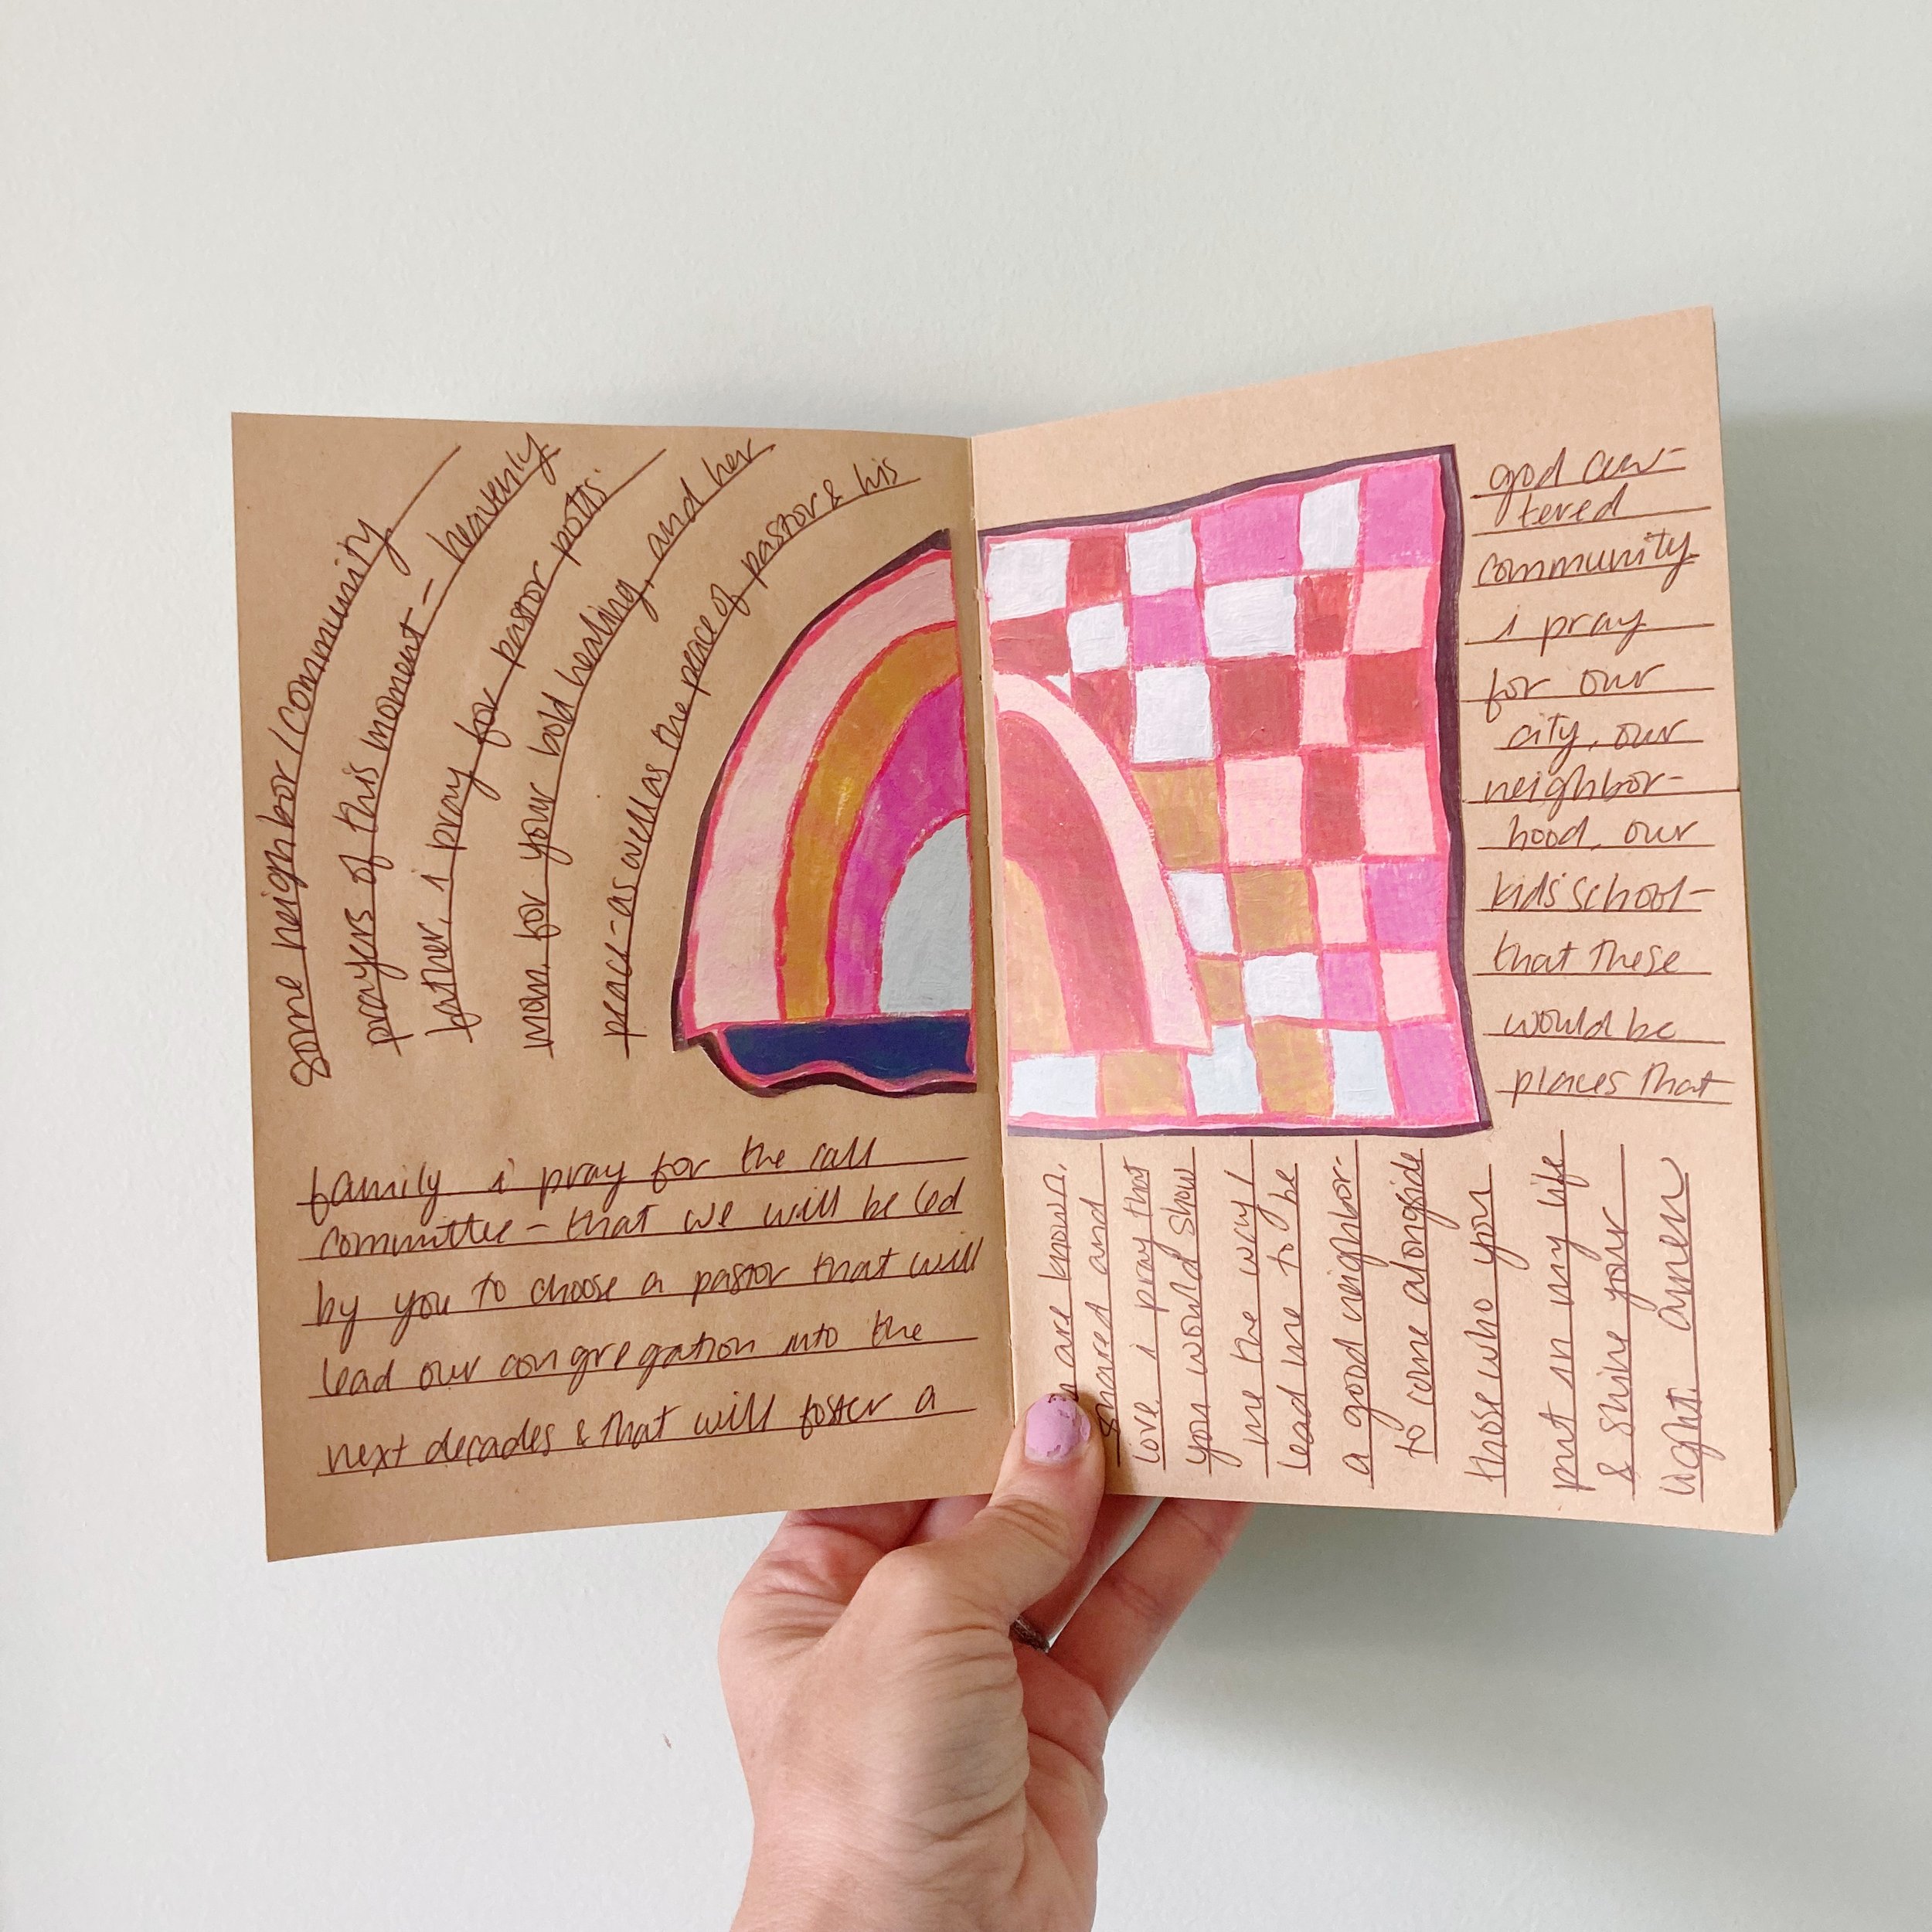 some neighbor/community
prayers of this moment - heavenly
father, i pray for pastor potts'
mom, for your bold healing, and her
peace - as well as the peace of pastor & his
family i pray for the call
committee - that we will be led
by you to choose a pastor that will
lead our congregation into the
next decades & that will foster a
god cen-
tered
community
i pray
for our
city, our
neighbor-
hood, our
kids' school -
that these
would be
places that
are known,
shared and
love. i pray that
you would show
me the way /
lead me to be
a good neighbor -
to come alongside
those who you
put in my life
& shine your
light. amen